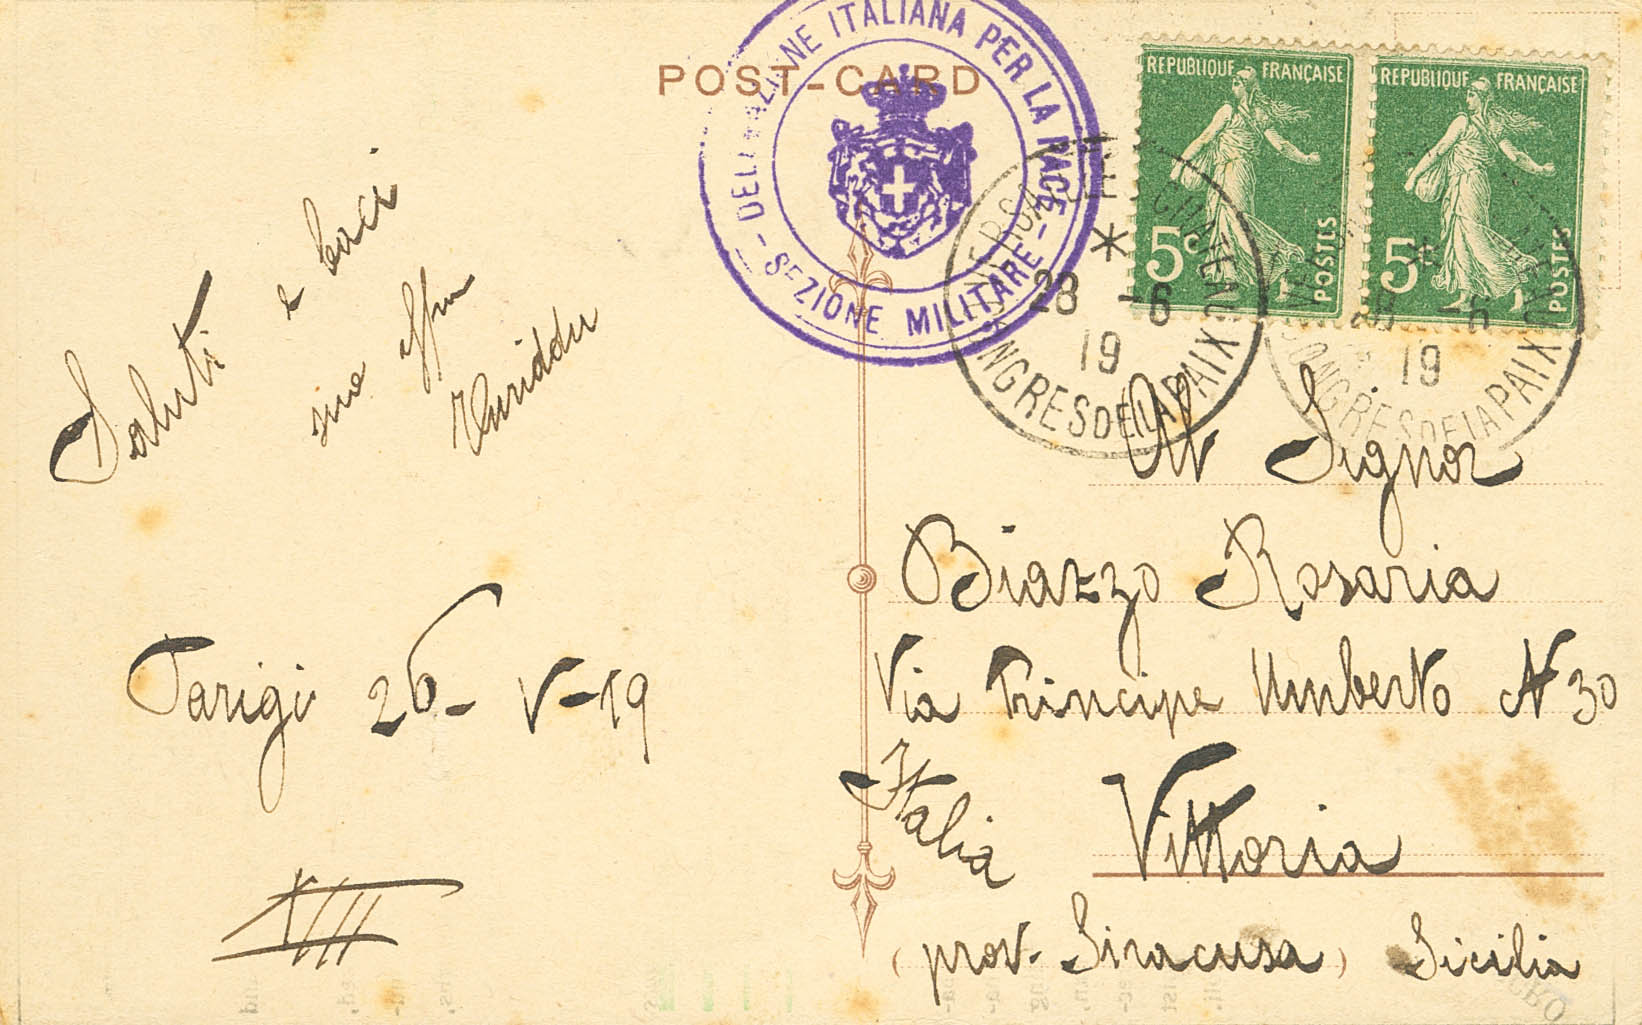 POST-CARD
DELEGAZIONE ITALIANA PER LA PACE
- SEZIONE MILITARE -
REPUBLIQUE FRANÇAISE
5c
POSTES
REPUBLIQUE FRANÇAISE
5c
POSTES
*
28 -6
19
CONGRES DE LA PAIX
28 -6
19
CONGRES DE LA PAIX
Saluti
e baci
suo affmo
Turiddu
Parigi 26- V-19
XIII
Al Signor
Biazzo Rosaria
Via Principe Umberto N 30
Italia
Vittoria
(prov. Siracusa) Sicilia